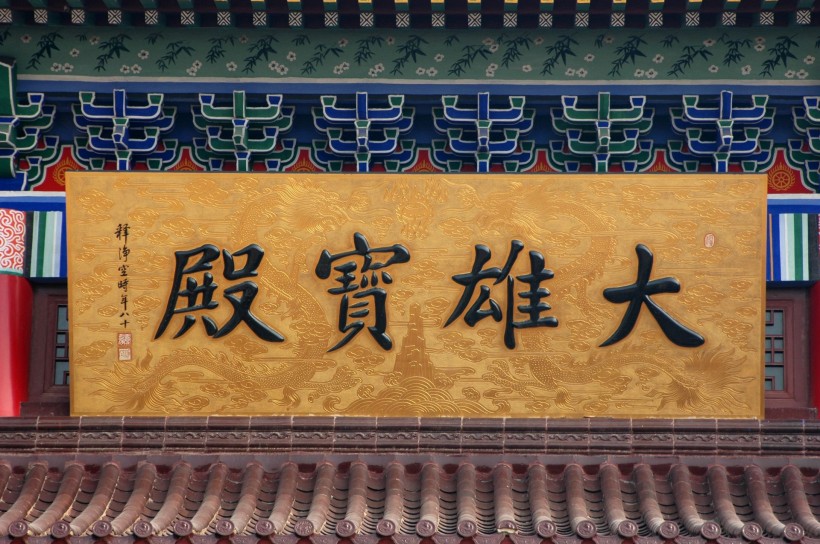 大雄寶殿
釋淨空時年八十